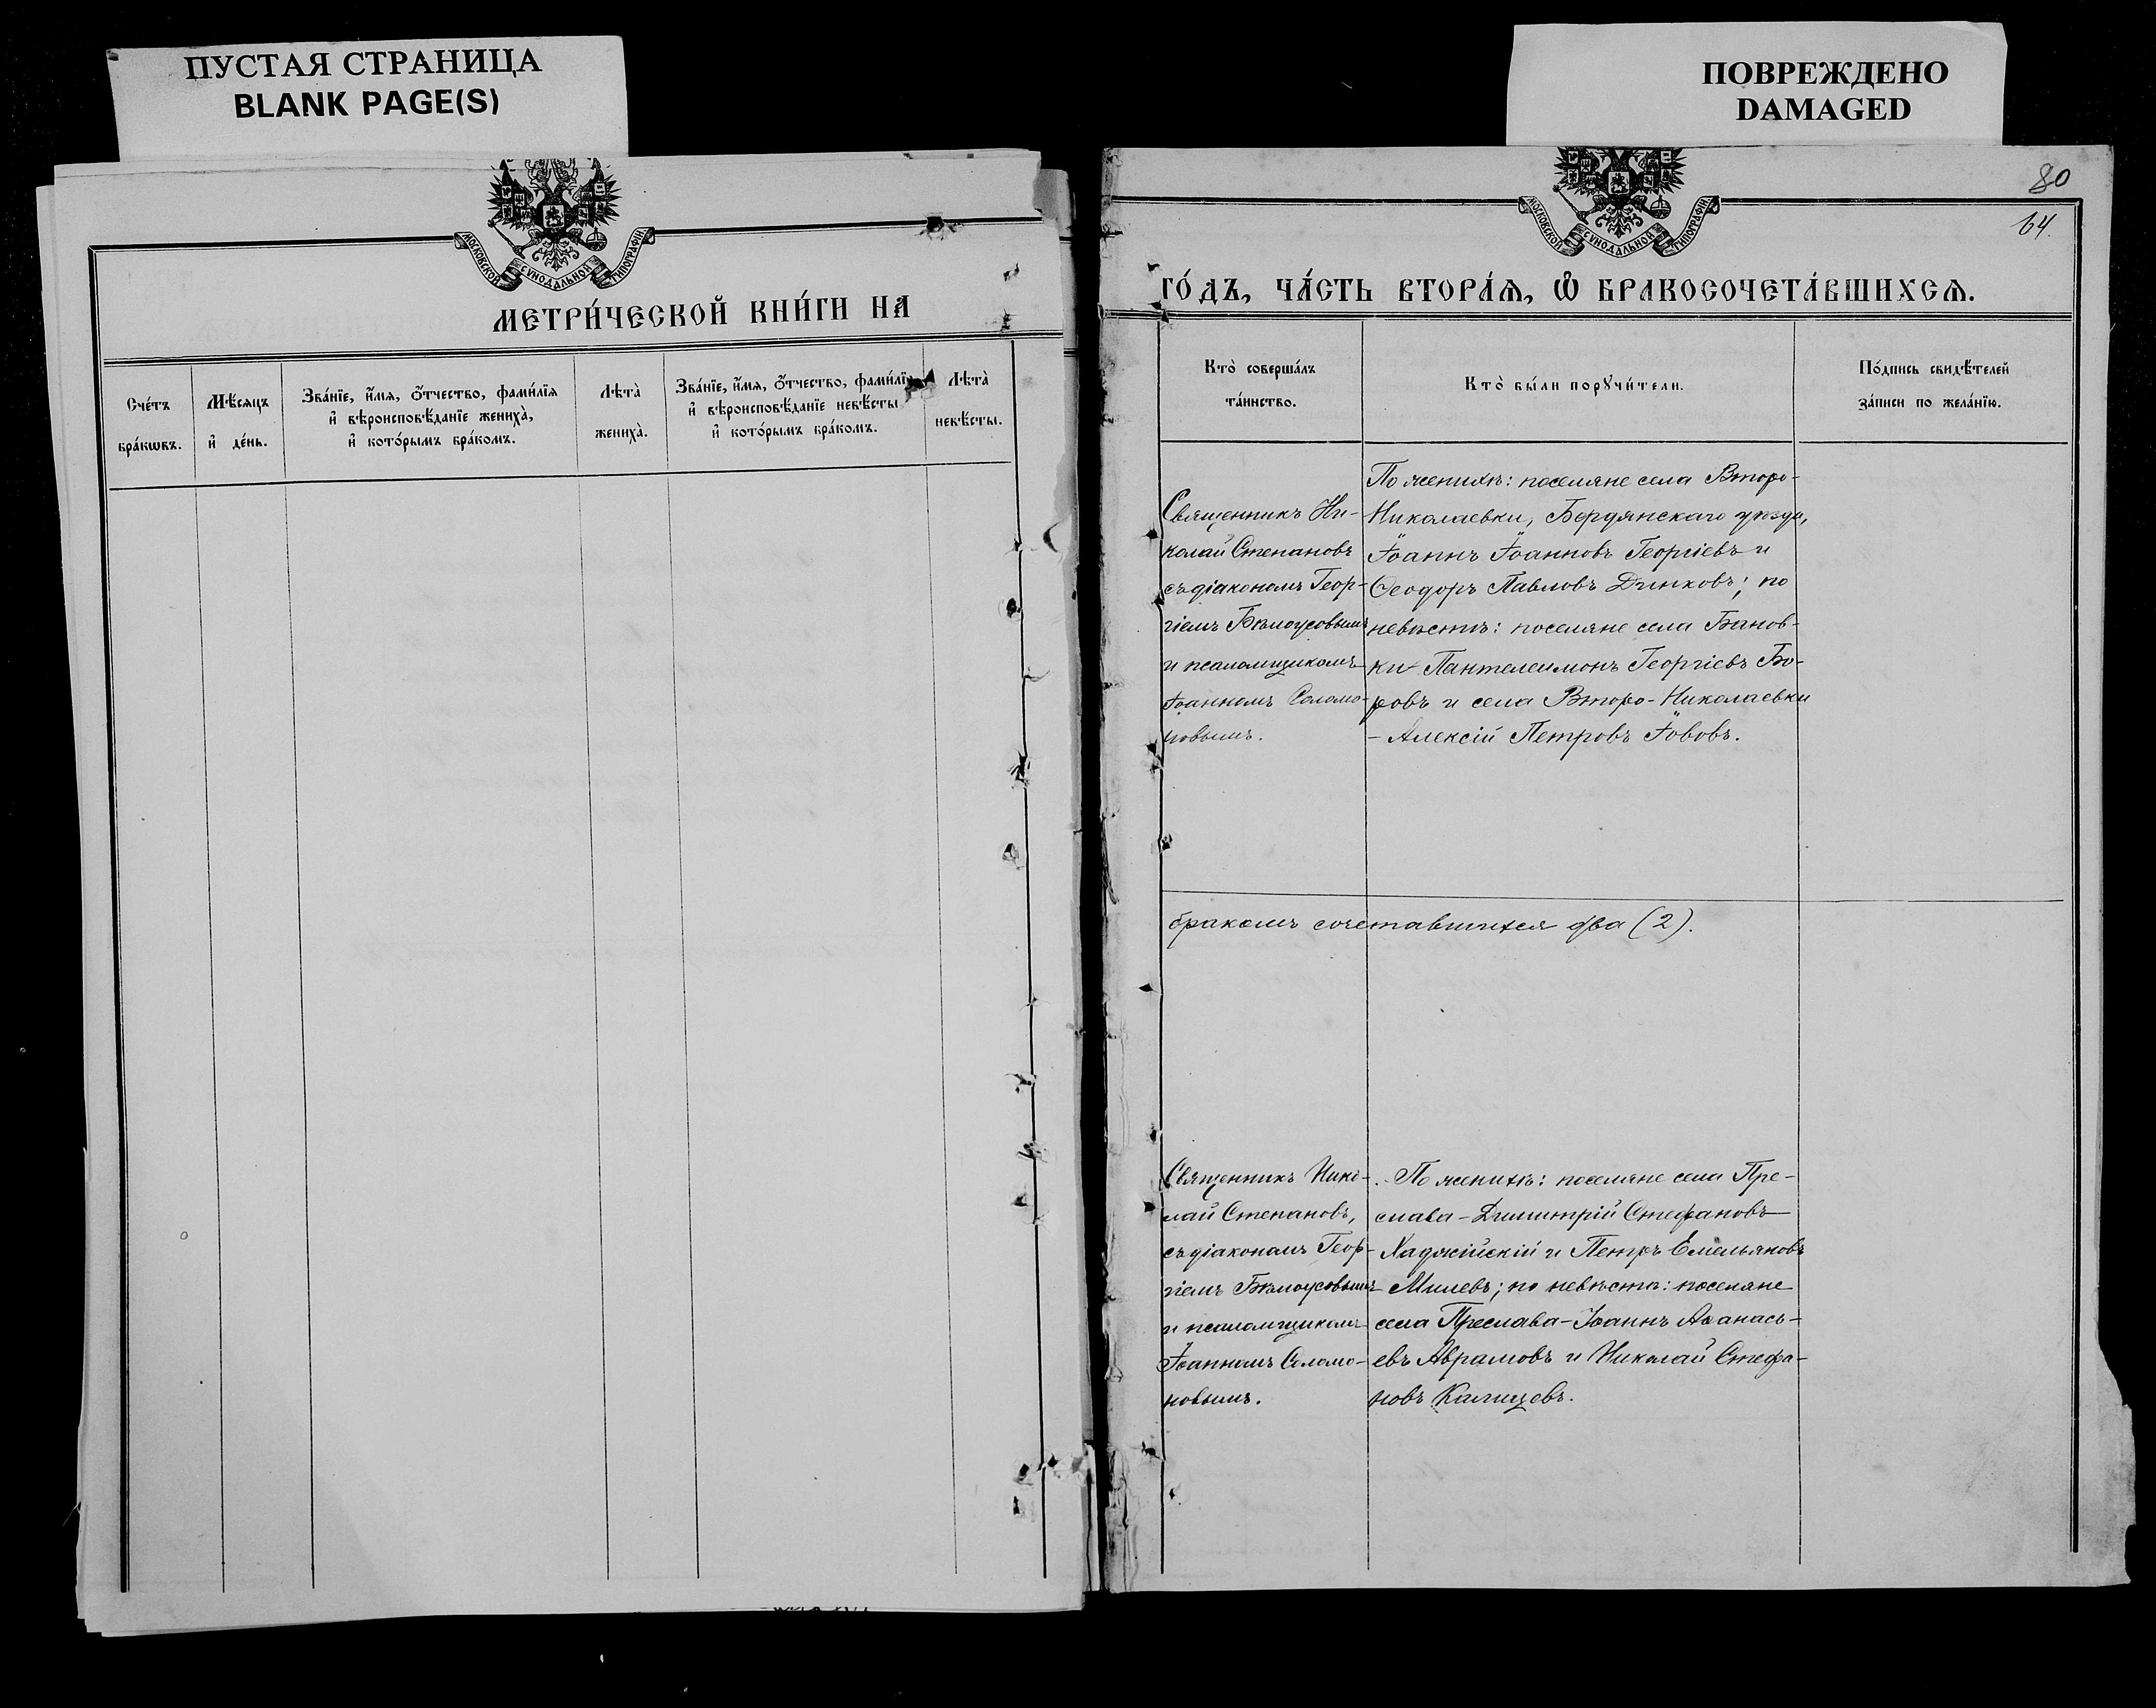 ПУСТАЯ СТРАНИЦА
BLANK PAGE(S)
ПОВРЕЖДЕНО
DAMAGED
МОСКОВСКОЙ СѴНОДАЛЬНОЙ ТИПОГРАФІИ
МЕТРИ́ЧЕСКОЙ КНИ́ГИ НА
Сче́тъ
бра́кѡвъ.
Мѣ́сяцъ
и҆ де́нь.
Зва́нїе, и҆́мя, ѻ҆́тчество, фами́лїя
и҆ вѣроисповѣ́данїе жениха̀,
и҆ кото́рымъ бра́комъ.
Лѣта̀
жениха̀.
Зва́нїе, и҆́мя, ѻ҆́тчество, фами́лїя
и҆ вѣроисповѣ́данїе невѣ́сты
и҆ кото́рымъ бра́комъ.
Лѣта̀
невѣ́сты.
80
64.
МОСКОВСКОЙ СѴНОДАЛЬНОЙ ТИПОГРАФІИ
ГО́ДЪ, ЧА́СТЬ ВТОРА́Ѧ, Ѽ БРАКОСОЧЕТА́ВШИХСѦ.
Кто̀ соверша́лъ
та́инство.
Кто̀ бы́ли порꙋчи́тели.
По́дпись свидѣ́телей
за́писи по жела́нїю.
Священникъ Ни-
колай Степановъ
съ діакономъ Геор-
гіемъ Бѣлоусовымъ
и псаломщикомъ
Іоанномъ Соломо-
новымъ.
По женихѣ: поселяне села Второ-
Николаевки, Бердянскаго уѣзда,
Іоаннъ Іоанновъ Георгіевъ и
Ѳеодоръ Павловъ Динковъ; по
невѣстѣ: поселяне села Банов-
ки Пантелеимонъ Георгіевъ Бо-
ровъ и села Второ-Николаевки
- Алексій Петровъ Іововъ.
бракомъ сочетавшихся два (2).
Священникъ Нико-
лай Степановъ,
съ діакономъ Геор-
гіемъ Бѣлоусовымъ
и псаломщикомъ
Іоанномъ Соломо-
новымъ.
По женихѣ: поселяне села Пре-
слава - Димитрій Стефановъ
Хаджійскій и Петръ Емельяновъ
Милевъ; по невѣстѣ: поселяне
села Преслава - Іоаннъ Аѳанась-
евъ Аврамовъ и Николай Стефа-
новъ Калицевъ.